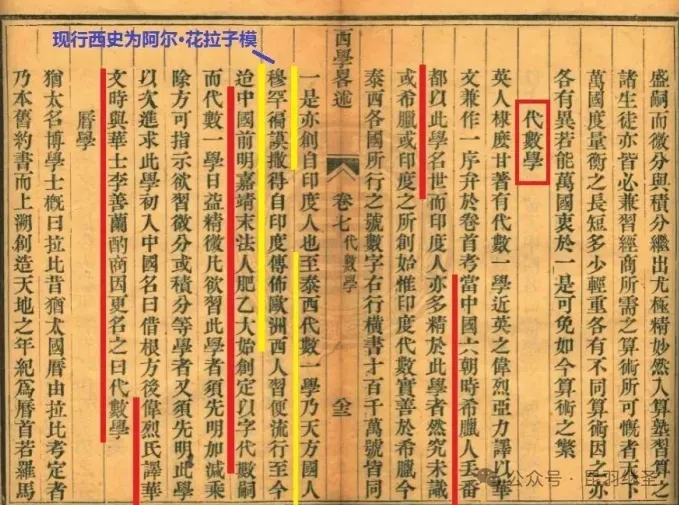 现行西史为阿尔•花拉子模
盛嗣而微分與積分繼出尤極精妙然入算塾習算之
諸生徒亦皆必兼習經商所需之算術所可慨者天下
萬國度量衡之長短多少輕重各有不同算術因之亦
各有異若能萬國衷於一是可免如今算術之繁
代數學
英人棣麽甘著有代數一學近英之偉烈亞力譯以華
文兼作一序弁於卷首考當中國六朝時希臘人丟番
都以此學名世而印度人亦多精於此學者然究未識
或希臘或印度之所創始惟印度代數實善於希臘今
泰西各國所行之號數字右行橫書才百千萬號皆同
西學畧述
卷七 代數學
一是亦創自印度人也至泰西代數一學乃天方國人
穆罕謨撒得自印度傳佈歐洲西人習便流行至今
迨中國前明嘉靖末法人肥乙大始創定以字代數嗣
而代數一學日益精微凡欲習此學者須先明加減乘
除方可指示欲習微分或積分等學者又須先明此學
以次進求此學初入中國名曰借根方後偉烈氏譯華
文時與華士李善蘭酌商因更名之曰代數學
曆學
猶太名博學士槪曰拉比昔猶太國曆由拉比考定者
乃本舊約書而上溯創造天地之年紀爲曆首若羅馬
公众号 · 昆羽继圣